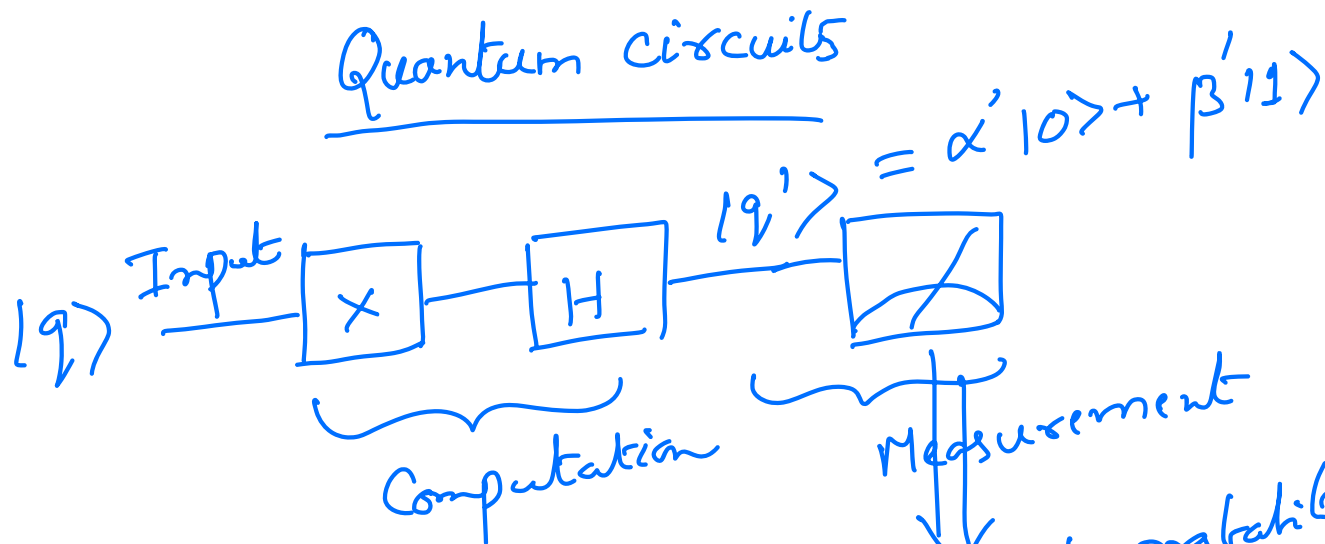 Quantum circuits
|q'> = α'|0> + β'|1>
|q> Input X H
Computation Measurement